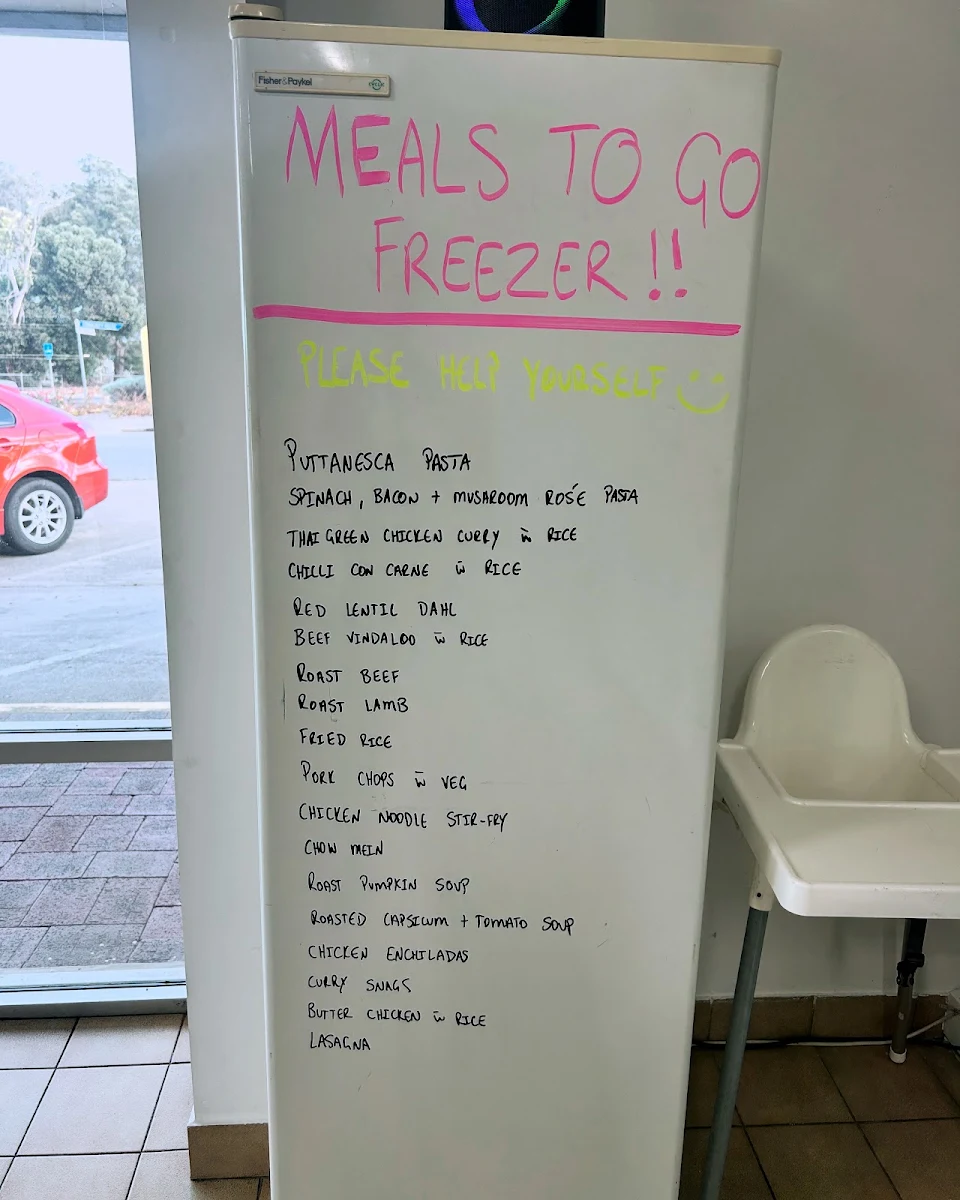 Fisher&Paykel
MEALS TO GO
FREEZER!!
PLEASE HELP YOURSELF
PUTTANESCA PASTA
SPINACH, BACON + MUSHROOM ROSÉ PASTA
THAI GREEN CHICKEN CURRY w̄ RICE
CHILLI CON CARNE w̄ RICE
RED LENTIL DAHL
BEEF VINDALOO w̄ RICE
ROAST BEEF
ROAST LAMB
FRIED RICE
PORK CHOPS w̄ VEG
CHICKEN NOODLE STIR-FRY
CHOW MEIN
ROAST PUMPKIN SOUP
ROASTED CAPSICUM + TOMATO SOUP
CHICKEN ENCHILADAS
CURRY SNAGS
BUTTER CHICKEN w̄ RICE
LASAGNA